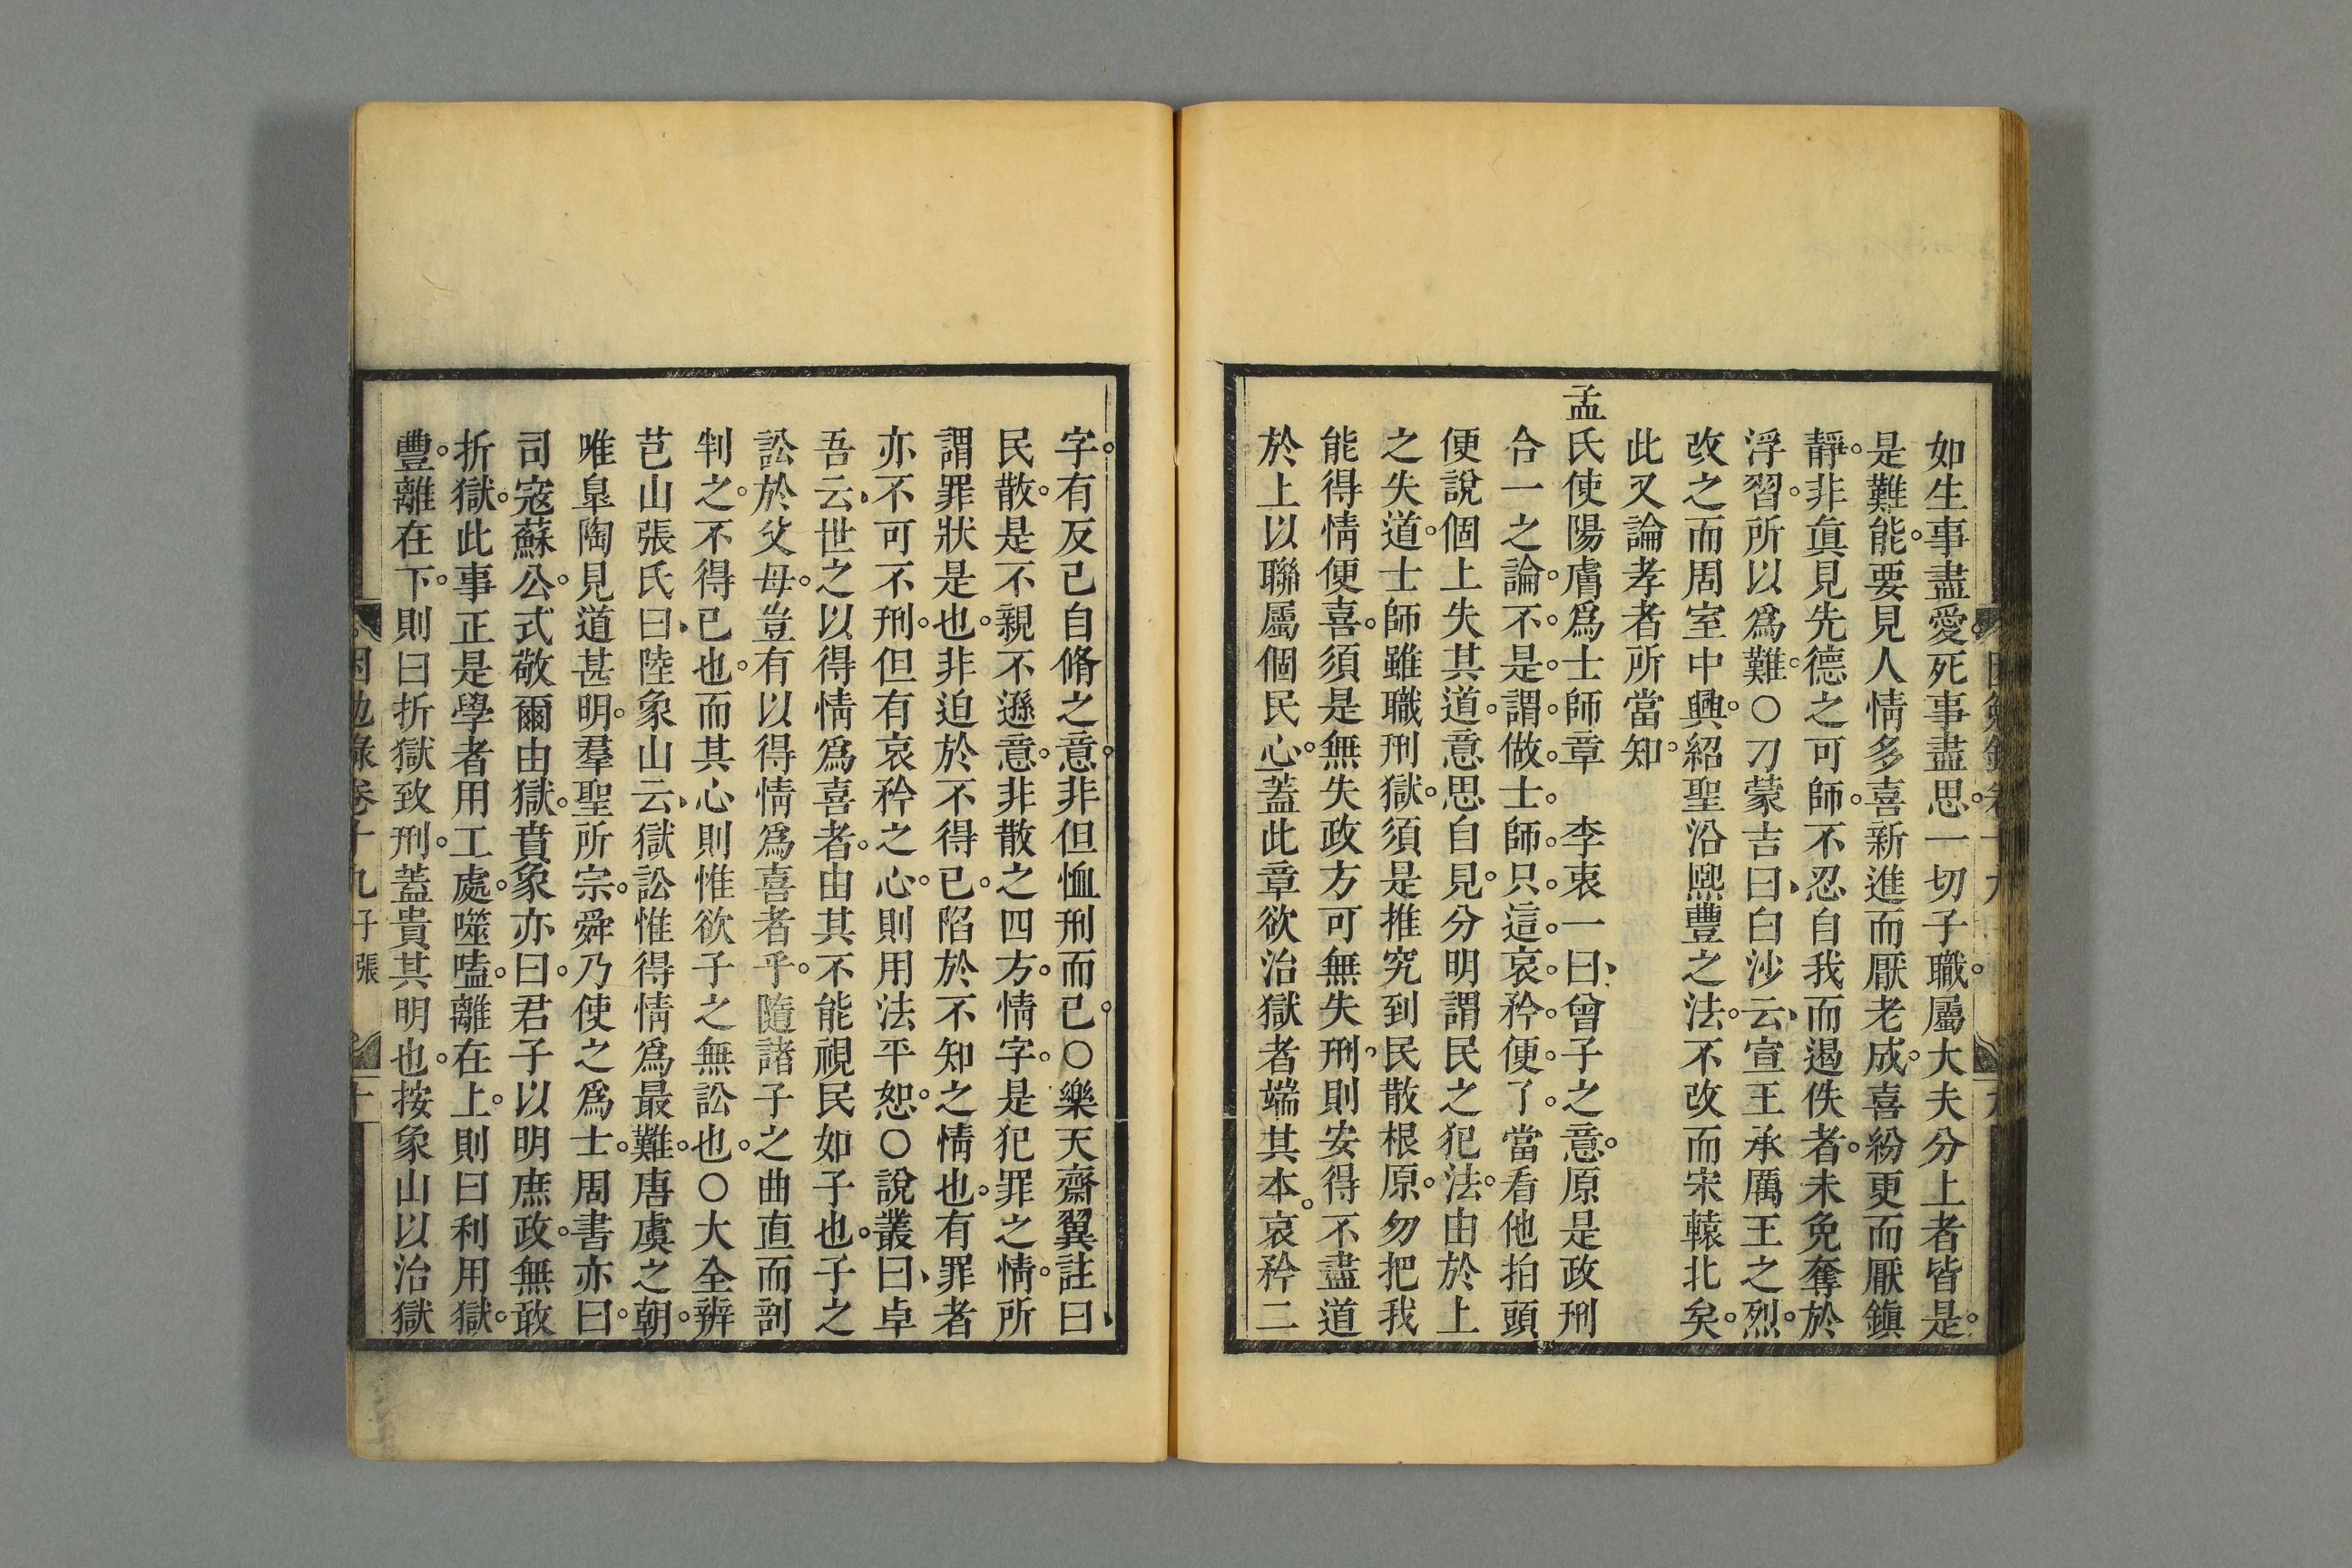 如生事盡愛。死事盡思。一切子職。屬大夫分上者皆是。
是難能。要見人情多喜新進而厭老成。喜紛更而厭鎭
靜。非眞見先德之可師。不忍自我而遏佚者。未免奪於
浮習。所以爲難。○刁蒙吉曰、白沙云、宣王承厲王之烈。
改之而周室中興。紹聖沿熈豐之法。不改而宋轅北矣。
此又論孝者所當知。
孟氏使陽膚爲士師章　李衷一曰、曾子之意。原是政刑
合一之論。不。是。謂。做。士。師。只。這。哀。矜。便。了。當看他拍頭
便說個上失其道。意思自見。分明謂民之犯法。由於上
之失道。士師雖職刑獄。須是推究到民散根原。勿把我
能得情便喜。須是無失政方可無失刑、則安得不盡道
於上以聯屬個民心。蓋此章欲治獄者端其本。哀矜二
字。有反己自脩之意。非但恤刑而已。○樂天齋翼註曰、
民散。是不親不遜意。非散之四方。情字。是犯罪之情。所
謂罪狀是也。非迫於不得已。陷於不知之情也。有罪者
亦不可不刑。但有哀矜之心。則用法平恕。○說叢曰、卓
吾云、世之以得情爲喜者。由其不能視民如子也。子之
訟於父母。豈有以得情爲喜者乎。隨諸子之曲直而剖
判之。不得已也。而其心則惟欲子之無訟也。○大全辨
芑山張氏曰、陸象山云、獄訟惟得情爲最難。唐虞之朝。
唯臯陶見道甚明。羣聖所宗。舜乃使之爲士。周書亦曰。
司寇蘇公。式敬爾由獄。賁象亦曰。君子以明庶政。無敢
折獄。此事正是學者用工處。噬嗑。離在上。則曰利用獄。
豐。離在下。則曰折獄致刑。蓋貴其明也。按象山以治獄
困勉錄卷十九子張　十